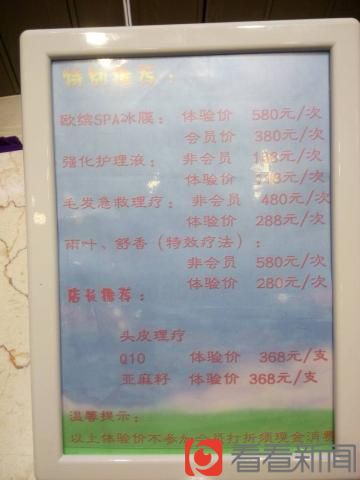 特别推荐：
欧缤SPA冰膜：体验价 580元/次
会员价 380元/次
强化护理液：非会员 元/次
体验价 元/次
毛发急救理疗：非会员 480元/次
体验价 288元/次
雨叶、舒香（特效疗法）：
非会员 580元/次
体验价 280元/次
店长推荐：
头皮理疗
Q10 体验价 368元/支
亚麻籽 体验价 368元/支
温馨提示：
以上体验价不参加会员打折须现金消费
看看新闻